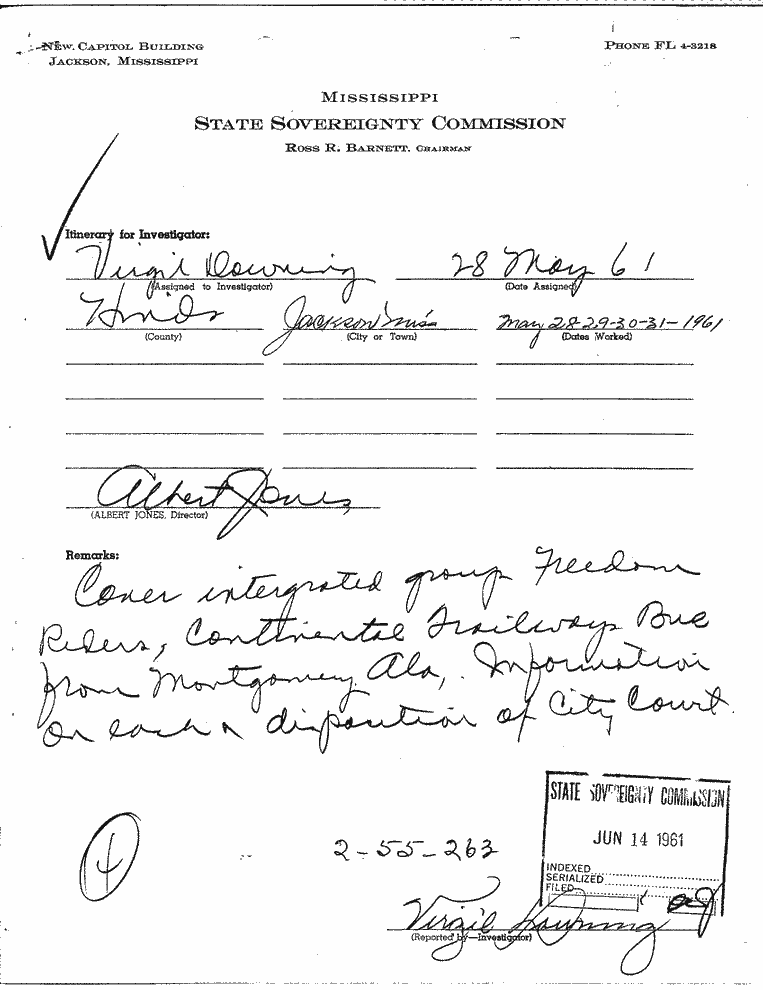 New Capitol Building
Jackson, Mississippi
Phone FL 4-3218
Mississippi
State Sovereignty Commission
Ross R. Barnett, Chairman
Itinerary for Investigator:
Virgil Downing 28 May 61
(Assigned to Investigator) (Date Assigned)
Hinds Jackson Miss May 28-29-30-31-1961
(County) (City or Town) (Dates Worked)
Albert Jones
(ALBERT JONES, Director)
Remarks:
Cover intergrated group Freedom
Riders, Continental Trailways Bus
from Montgomery Ala,. Information
on each & disposition of City Court.
STATE SOVEREIGNTY COMMISSION
JUN 14 1961
INDEXED
SERIALIZED
FILED
4
2-55-263
Virgil Downing
(Reported by—Investigator)